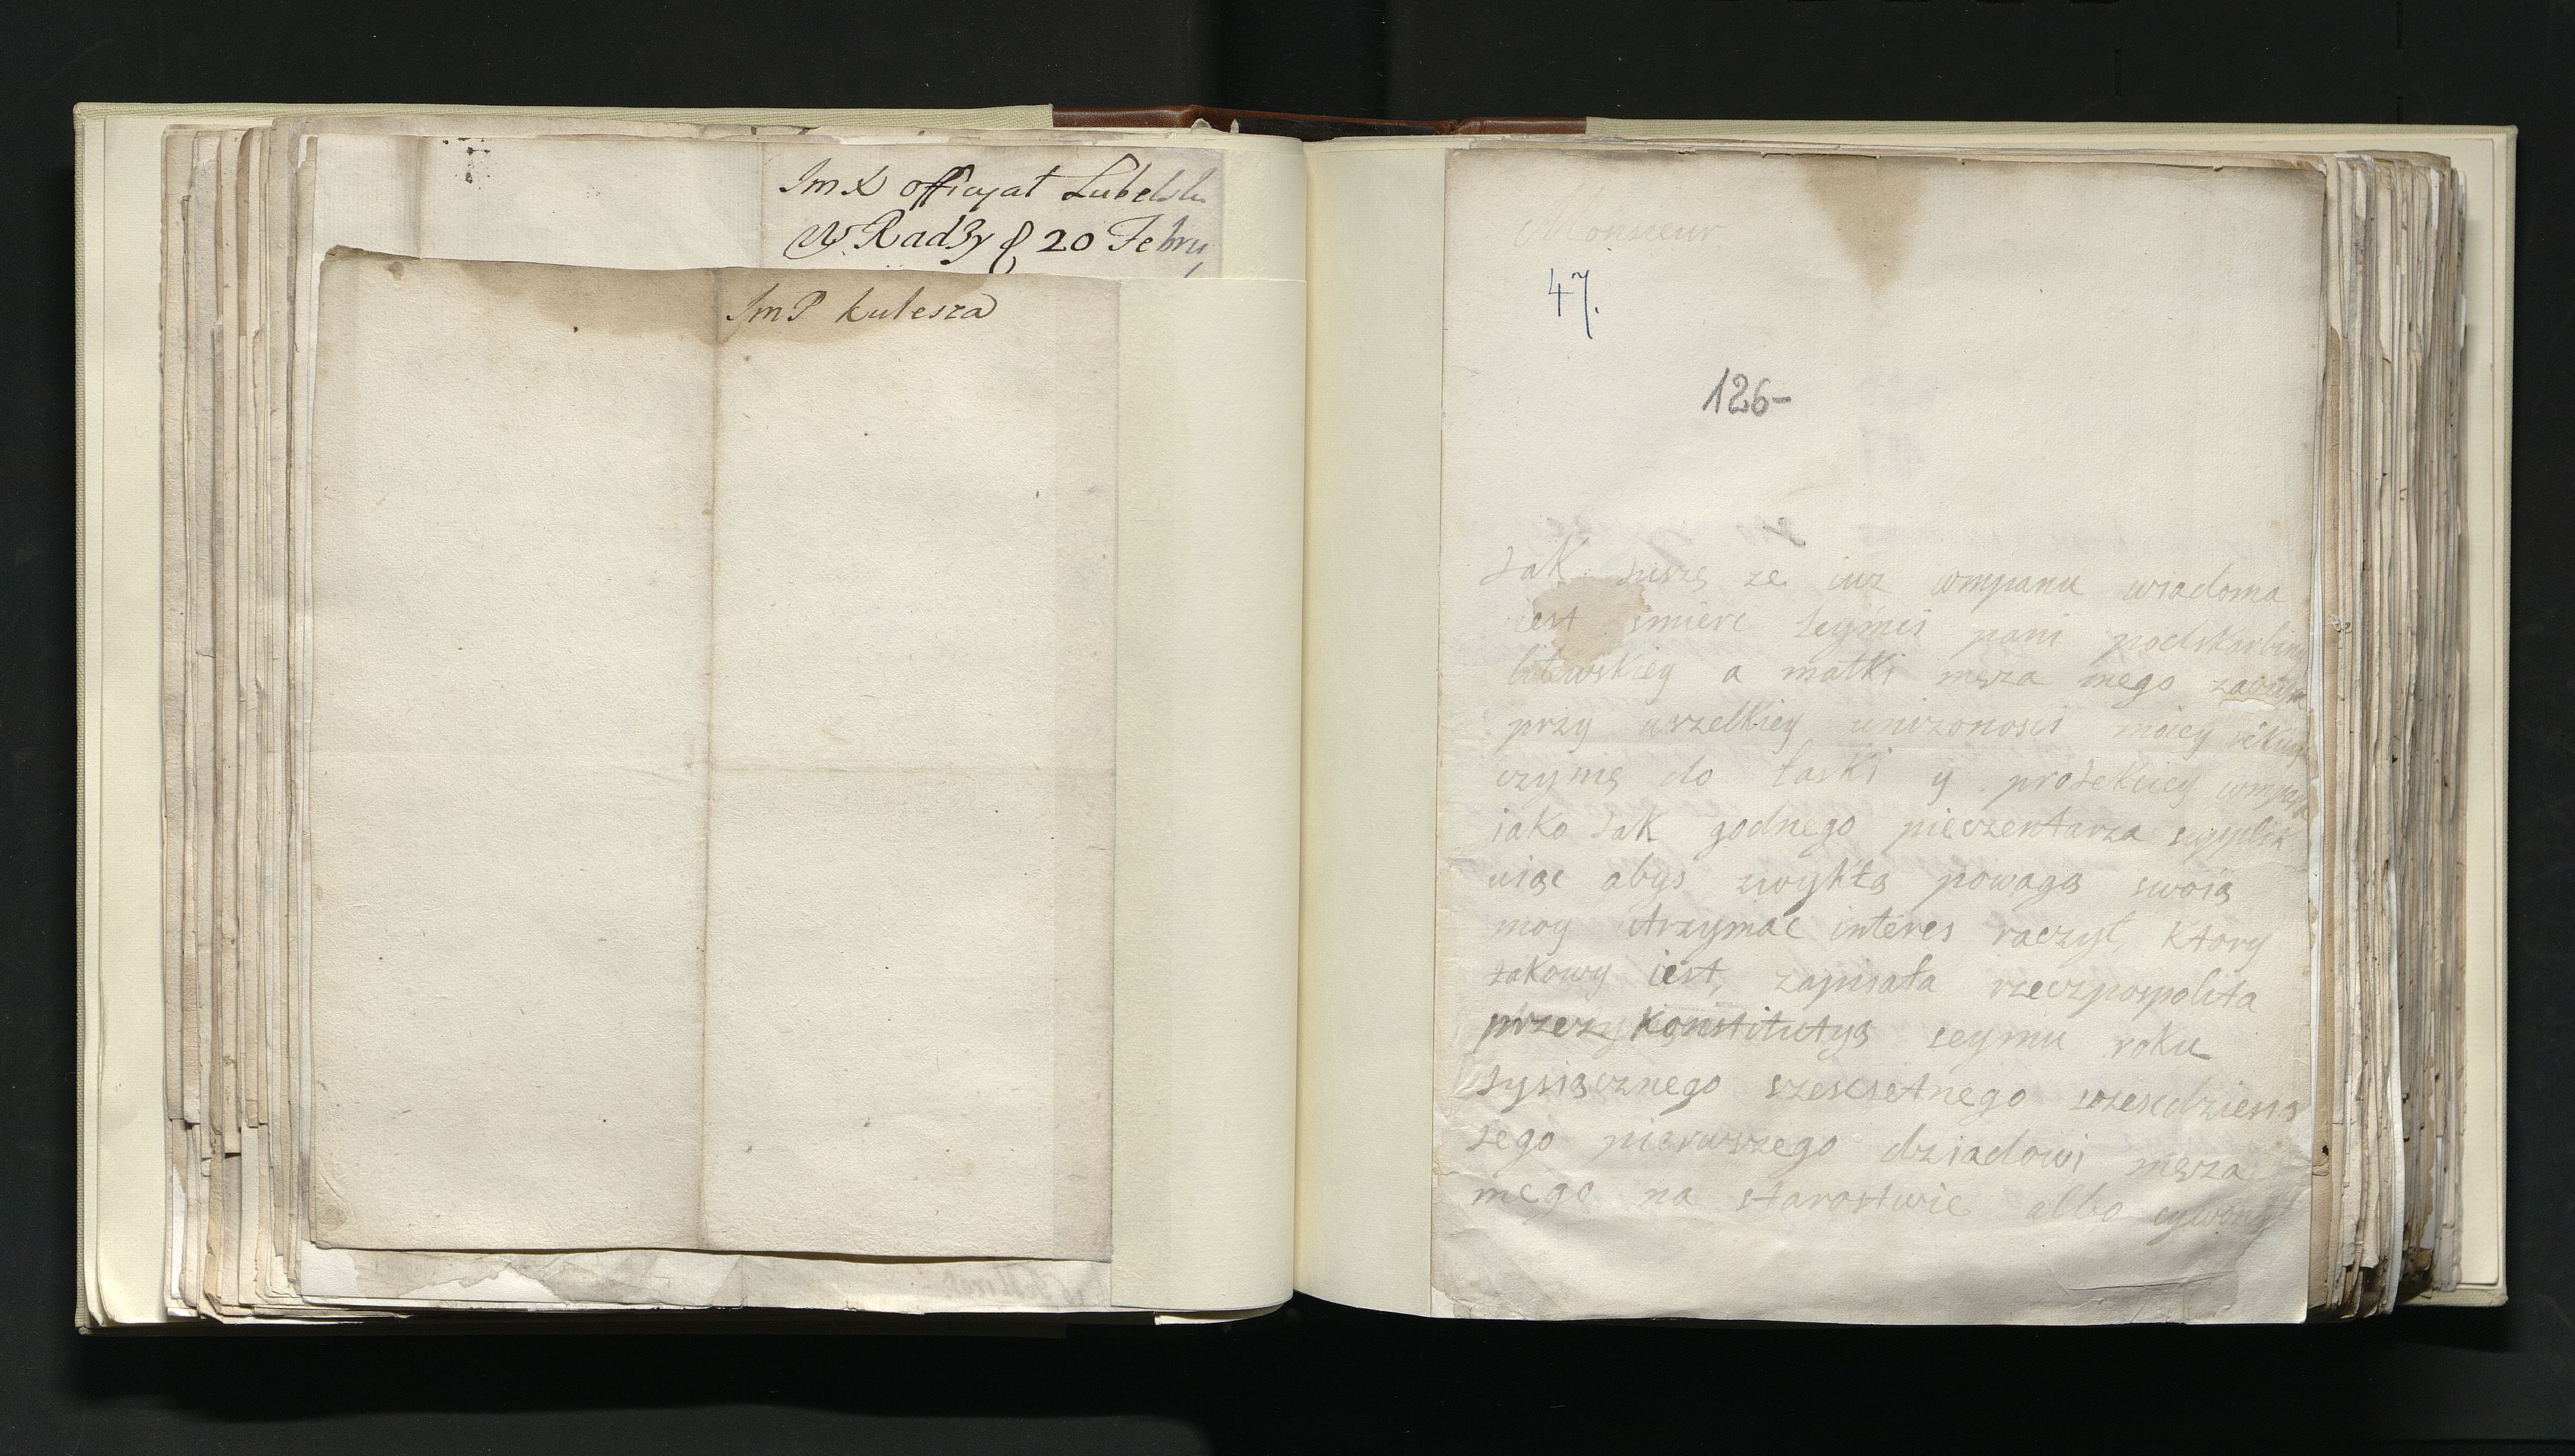 Jm X officyał Lubelsk
W Radzy 20 Febru
Jm P kulesza
Monsieur
47.
126-
Tak tuszę ze iuz wmpanu wiadoma
iest smierc Jeymci pani podskarbiny
litewskiey a matki męza mego
przy wszelkiey unizonosci moiey
do łaski y protekciey wmpana
iako tak godnego pieczentarza supplik
uiąc abys zwykłą powagą swoią
moy utrzymac interes raczył, ktory
takowy iest, zapisała rzeczpospolita
przez konstitutyą seymu roku
tysiącznego szescsetnego szescdziesią
tego pierwszego dziadowi męza
mego na starostwie albo